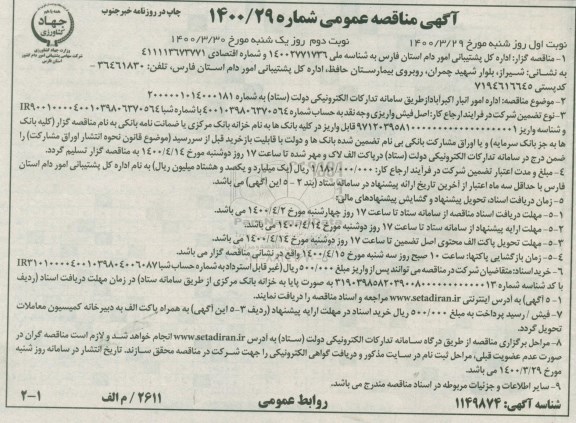 چاپ در روزنامه خبر جنوب
آگهی مناقصه عمومی شماره ۱۴۰۰/۲۹
جهاد کشاورزی
نوبت اول روز شنبه مورخ ۱۴۰۰/۳/۲۹ نوبت دوم روز یک شنبه مورخ ۱۴۰۰/۳/۳۰
۱- مناقصه گزار: اداره کل پشتیبانی امور دام استان فارس به شناسه ملی ۱۴۰۰۲۷۷۱۷۳۶ و شماره اقتصادی ۴۱۱۱۱۳۶۷۳۷۷۱
به نشانی: شیراز، بلوار شهید چمران، روبروی بیمارستان حافظ، اداره کل پشتیبانی امور دام استان فارس، تلفن: ۳۶۴۶۱۸۳۰ - کدپستی ۷۱۹۴۶۱۶۶۴۵
۲- موضوع مناقصه: اداره امور انبار اکبرآباد از طریق سامانه تدارکات الکترونیکی دولت (ستاد) به شماره
۳- نوع تضمین شرکت در فرایند ارجاع کار: اصل فیش واریزی وجه نقد به حساب شماره ۴۰۰۱۰۳۹۸۰۶۳۷۰۵۶۴ با شماره شبا
و شناسه واریز قابل واریز در کلیه بانک ها به نام خزانه بانک مرکزی یا ضمانت نامه بانکی به نام مناقصه گزار (کلیه بانک
ها به جز بانک سرمایه) و یا اوراق مشارکت بانکی بی نام تضمین شده بانک ها و دولت با قابلیت بازخرید قبل از سررسید (موضوع قانون نحوه انتشار اوراق مشارکت) را
ضمن درج در سامانه تدارکات الکترونیکی دولت (ستاد) در پاکت الف لاک و مهر شده تا ساعت ۱۷ روز دوشنبه مورخ ۱۴۰۰/۴/۱۴ به مناقصه گزار تسلیم گردد.
۴- مبلغ و مدت اعتبار تضمین شرکت در فرآیند ارجاع کار: ۱/۱۸۰/۰۰۰/۰۰۰ ریال (یک میلیارد و یکصد و هشتاد میلیون ریال) به نام اداره کل پشتیبانی امور دام استان
فارس با حداقل سه ماه اعتبار از آخرین تاریخ ارائه پیشنهاد در سامانه ستاد (بند ۲ - ۵ این آگهی) می باشد.
۵- زمان دریافت اسناد، تحویل پیشنهاد و گشایش پیشنهادهای مالی:
۱-۵- مهلت دریافت اسناد مناقصه از سامانه ستاد تا ساعت ۱۷ روز چهارشنبه مورخ ۱۴۰۰/۴/۲ می باشد.
۲-۵- مهلت ارایه پیشنهاد از سامانه ستاد تا ساعت ۱۷ روز دوشنبه مورخ ۱۴۰۰/۴/۱۴ می باشد.
۳-۵- مهلت تحویل پاکت الف محتوی اصل تضمین تا ساعت ۱۷ روز دوشنبه مورخ ۱۴۰۰/۴/۱۴ می باشد.
۵-۴- زمان بازگشایی پاکتها: ساعت ۱۰ صبح روز سه شنبه مورخ ۱۴۰۰/۴/۱۵ واقع در نشانی مناقصه گزار می باشد.
۶- خرید اسناد: متقاضیان شرکت در مناقصه می توانند پس از واریز مبلغ ۵۰۰/۰۰۰ ریال (غیر قابل استرداد) به شماره حساب شبا
با کد شناسه شماره به صورت پایا به خزانه بانک مرکزی از طریق سامانه ستاد) در زمان مهلت دریافت اسناد (ردیف
۱ - ۵) آگهی به آدرس اینترنتی www.setadiran.ir مراجعه و اسناد مناقصه را دریافت نمایند.
۷- فیش / رسید پرداخت به مبلغ ۵۰۰/۰۰۰ ریال خرید اسناد در مهلت ارایه پیشنهاد (ردیف ۳-۵ این آگهی) به همراه پاکت الف به دبیرخانه کمیسیون معاملات
تحویل گردد.
۸- مراحل برگزاری مناقصه از طریق درگاه سامانه تدارکات الکترونیکی دولت (ستاد) به آدرس www.setadiran.ir انجام خواهد شد و لازم است مناقصه گران در
صورت عدم عضویت قبلی، مراحل ثبت نام در سایت مذکور و دریافت گواهی الکترونیکی را جهت شرکت در مناقصه محقق سازند. تاریخ انتشار در سامانه روز شنبه
مورخ ۱۴۰۰/۳/۲۹ می باشد.
۹- سایر اطلاعات و جزئیات مربوطه در اسناد مناقصه مندرج می باشد.
شناسه آگهی: ۱۱۴۹۸۷۴ روابط عمومی ۲۶۱۱ / م الف ۲-۱